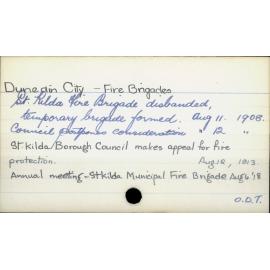 Dunedin City – Fire Brigades
St. Kilda Fire Brigade disbanded,
temporary brigade formed. Aug 11. 1908.
Council postpones consideration " 12 "
St Kilda/Borough Council makes appeal for fire
protection. Aug 12, 1913.
Annual meeting – St Kilda Municipal Fire Brigade Aug 6 '18
O.D.T.